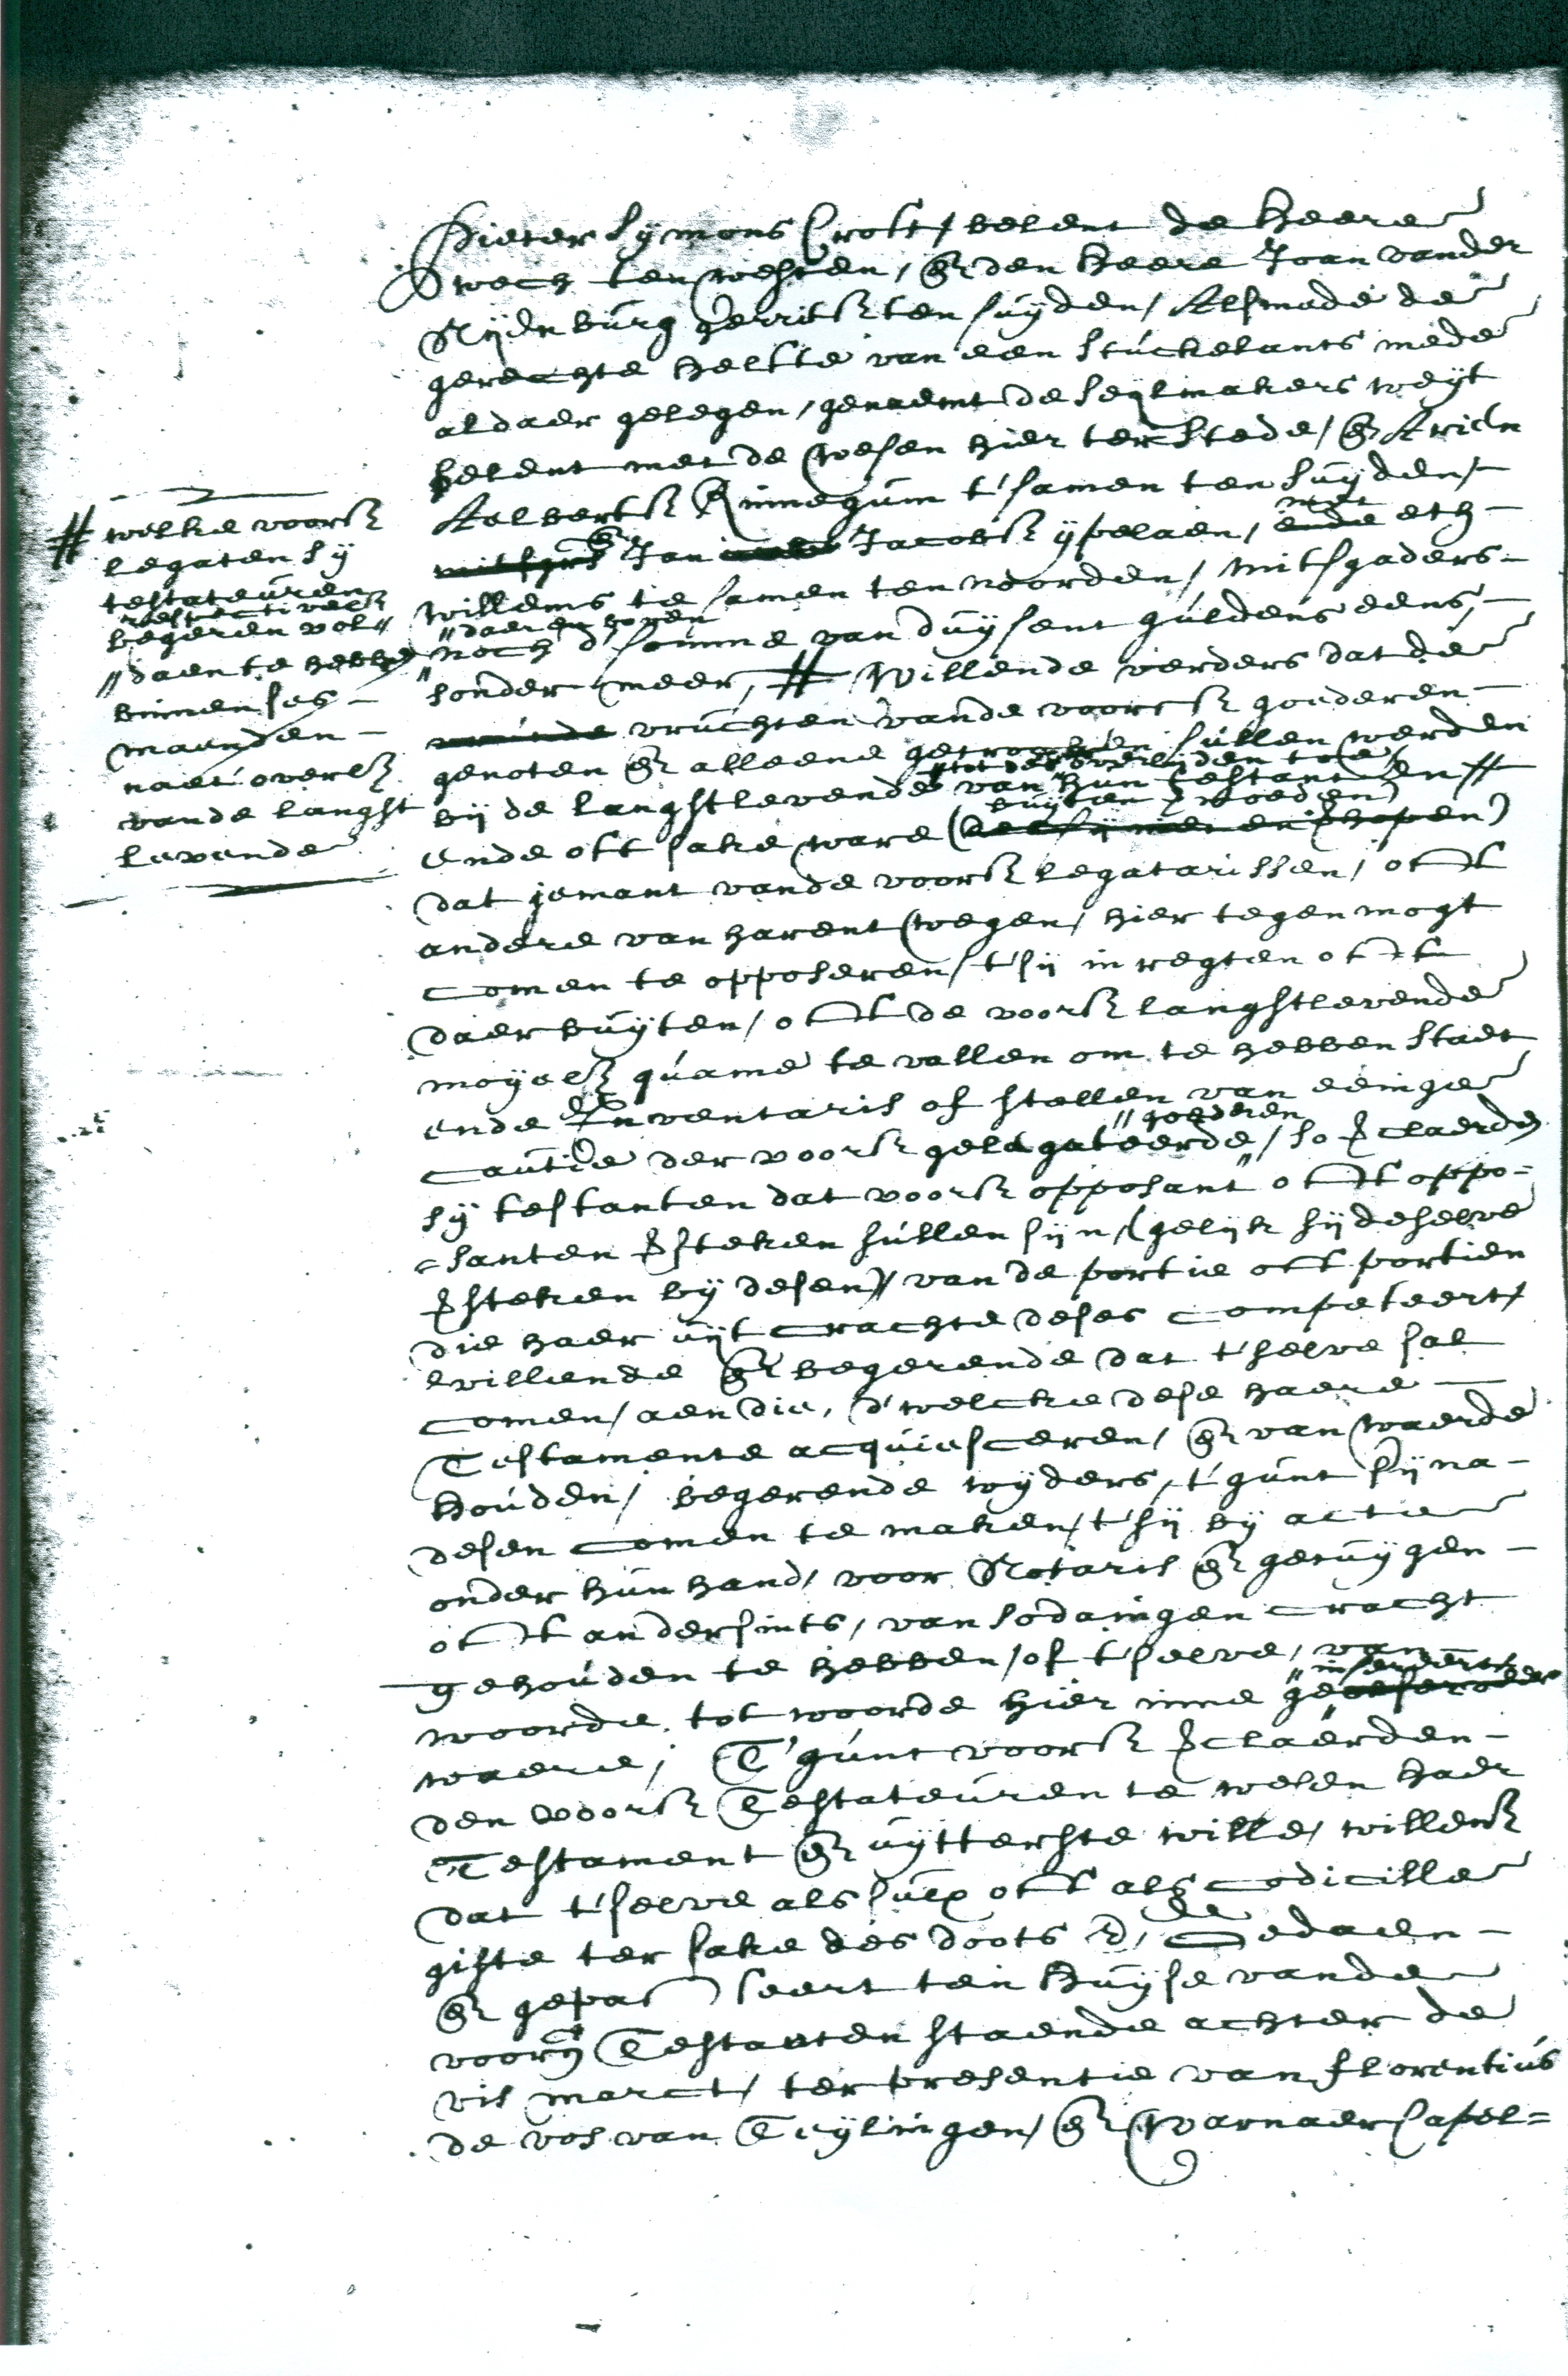 Pieter Symons Croll / belent de Heere
wech ten westen, en den Heere Joan vander
Nijenburg Gerritsz ten suyden / Alsmede de
gerechte helfte van een stuckelants mede
aldaer gelegen, genaemt de Seylmakers weyt
belent met de wesen hier ter stede / en Arien
Aelbertsz Rinnegum t'samen ten suyden /
mitsgrs en Jan Jacobsz ypelaen, ende met eth
willems te samen ten noorden / mitsgaders
"daerenboven
noch d' somme van duysent guldens eens,
sonder meer, # Willende verders dat de
vruchten vande voorsz goederen
genoten en alleene getrocken sullen werden
"tot des overlyden toe
bij de langstlevende van hun testanten #
buyten vermoeden)
ende oft sake ware (
dat jemant vande voorsz legatarissen / oft
andere van harent wegen / hier tegen mogt
comen te opposeren / t'sij in regten oft
daer buyten / oft de voorsz langstlevende
moyelz quame te vallen om te hebben staet
ende Inventaris of stellen van eenige
"goederen
cautie der voorsz gelegateerde" / so verclaerdn
sy testanten dat voorsz opposant oft oppo-
santen versteken sullen sijn / (gelijk sij deselve
versteken by desen) van de portie oft portien
die haer uijt crachte deses competeert /
willende en begerende dat t'selve sal
comen / aen die, d'welcke dese haere
Testamente acquiesceren / en van waerde
houden / begerende wyders, t'gunt sy na
desen comen te maken / t'sij by acte
onder hun hand / voor Notaris en getuygen
oft andersints, van sodaingen cracht
gehouden te hebben / of t'selve, van
"insereert
woorde tot woorde hier inne ge
waere; T'gunt voorsz verclaerden
den voorsz Testateuren te wesen haer
Testament en uytterste wille, willensz
dat t'selve als sulx oft als codicille
gifte ter sake des doots &, Gedaen
en gepasseert ten huyse vande
voorsz Testanten staende achter de
vis marct / ter presentie van Florentius
de vos van Teylingen / en Warnaer Capel=
# welke voorsz
legaten sy
testateuren
respectivelz
begeren vol"
"daen te hebben
binnen ses
maenden
naet overlz
vande langst
levende